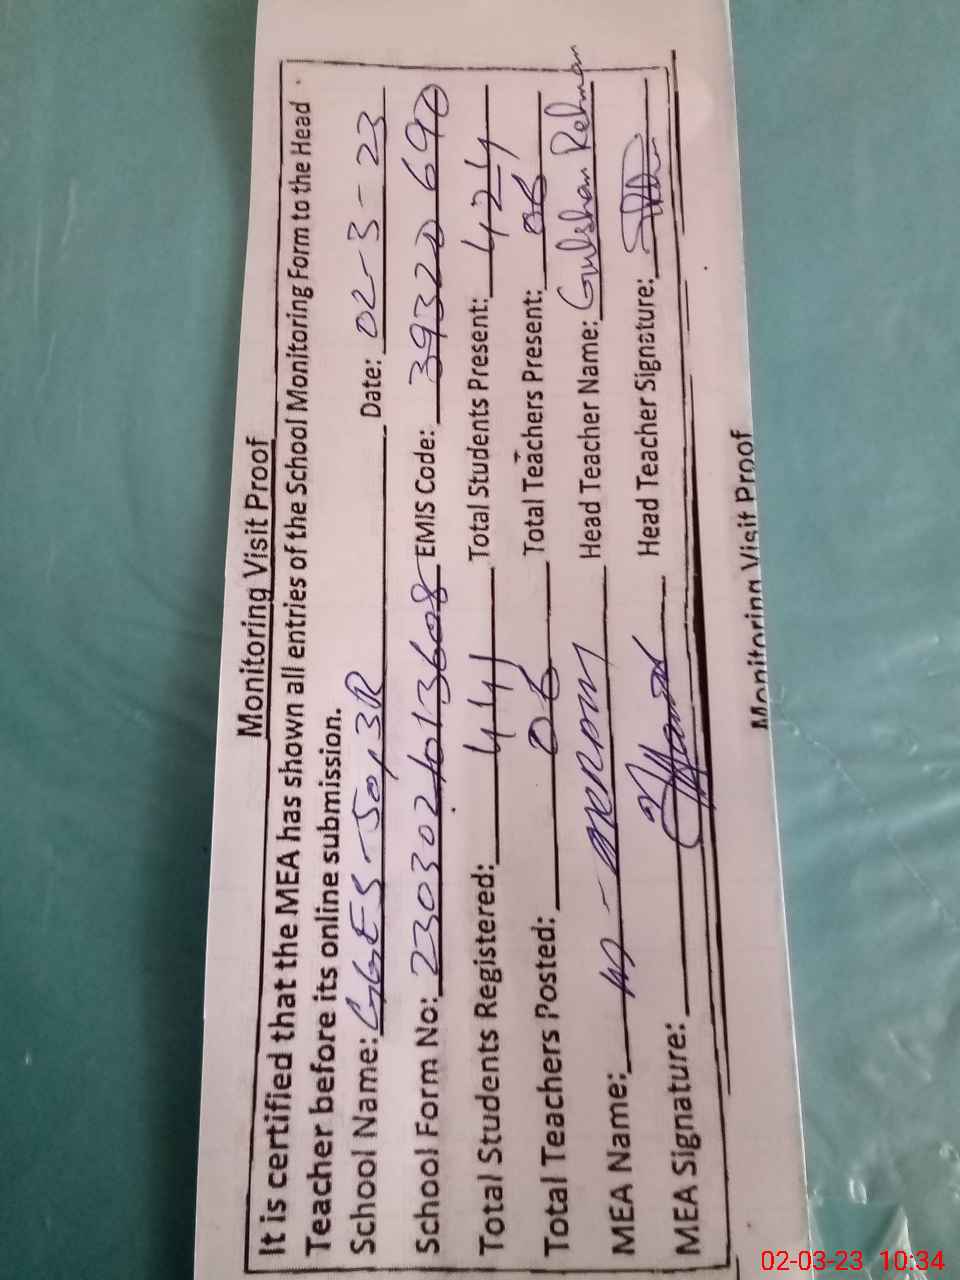 Monitoring Visit Proof
It is certified that the MEA has shown all entries of the School Monitoring Form to the Head
Teacher before its online submission.
School Name: GGES-50,3R Date: 02-3-23
School Form No: 2303024013608 EMIS Code: 39320690
Total Students Registered: 441 Total Students Present: 424
Total Teachers Posted: 06 Total Teachers Present: 06
MEA Name: Head Teacher Name: Gulshan Rehman
MEA Signature: Head Teacher Signature:
Monitoring Visit Proof
02-03-23 10:34